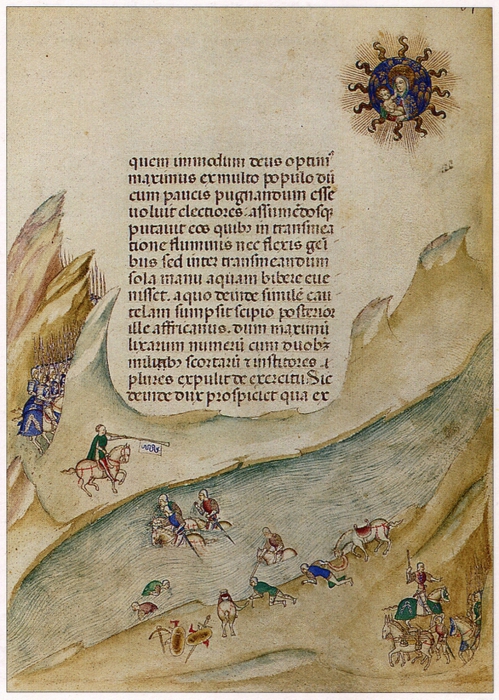 quem in modum deus optim9
maximus ex multo populo dū
cum paucis pugnandum esse
uoluit electiores. assumēdosq3
putauit eos quib9 in transmea
tione fluminis nec flexis geī
bus sed inter transmeandum
sola manu aquam bibere eue
nisset. a quo deinde similē cau
telam sumpsit scipio posterior
ille affricanus. dum maximū
lixarum numerū cum duob3
milib9 scortarū ⁊ institores
plures expulit de exercitu. Sic
deinde dux prospiciet qua ex